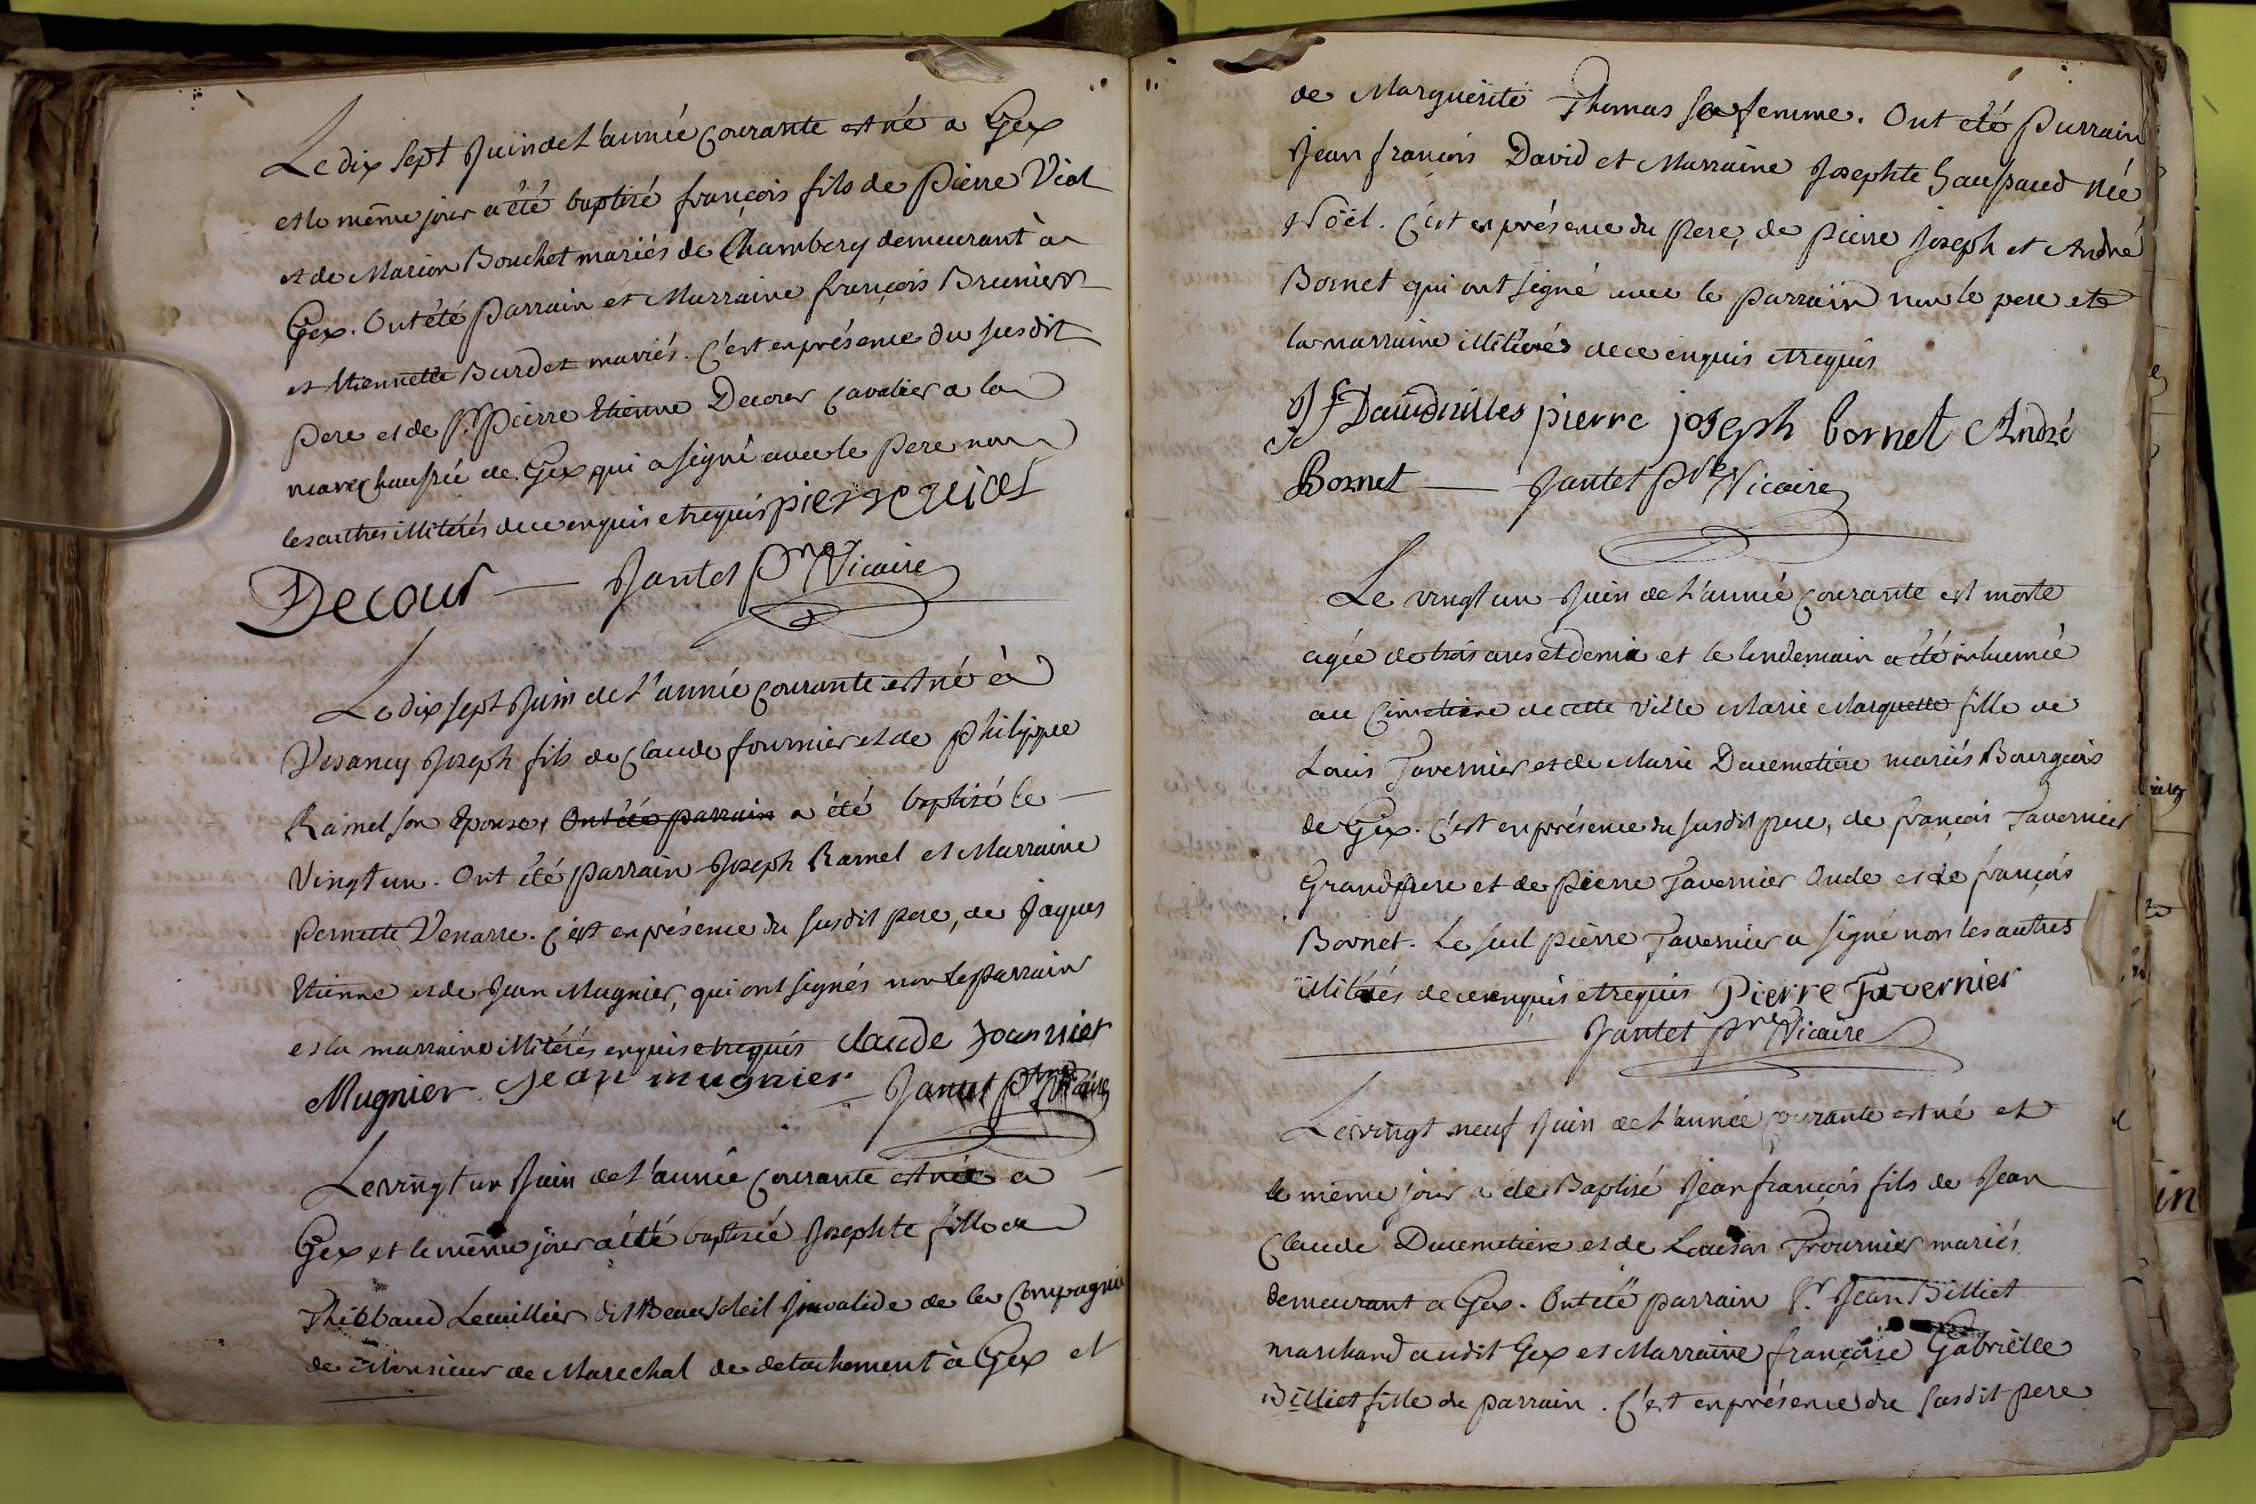 Le dix sept Juin de l'année courante est né a Gex
et le même jour a été baptisé françois fils de Pierre Vial
et de Marion Bouchet mariés de Chambery demeurant à
Gex. Ont été Parrain et Marraine françois Brunier
et Etiennette Burdet mariés. C'est en présence du susdit
Pere et de Sr. Pierre Etienne Decour Cavalier a la
marechaussée de Gex qui a signé avec le Pere non
les autres illiterés de ce enquis et requis pierre vial
Decour — Jantet Ptre Vicaire
Le dix sept Juin de l'année courante est né à
Vesancy Joseph fils de Claude fournier et de philippe
Ramel son Epouse, Ont été parrain a été baptisé le
Vingt un. Ont été parrain Joseph Ramel et Marraine
Pernette Venarre. C'est en présence du susdit pere, de Jaques
Etienne et de Jean Mugnier, qui ont signés non le parrain
et la marraine illiterés enquis et requis claude fournier
Mugnier. Jean mugnier — Jantet Ptre Vicaire
Le vingt un Juin de l'année courante est née a
Gex et le même jour a été baptisée Josephte fille de
Thiebaud Lemillier dit Beausoleil Invalide de la Compagnie
de Monsieur de Marechal de detachement à Gex et
de Marguerite Thomas sa femme. Ont été Parrain
Jean françois David et Marraine Josephte née
Noël. C'est en présence du Pere, de pierre Joseph et André
Bornet qui ont signé avec le parrain non le pere et
la marraine illiterés de ce enquis et requis
pierre joseph bornet André
Bornet — Jantet Ptre Vicaire
Le vingt un Juin de l'année courante est morte
agée de trois ans et demi et le lendemain a été inhumée
au Cimetiere de cette Ville Marie Marquette fille de
Louis Tavernier et de Marie Ducimetiere mariés Bourgeois
de Gex. C'est en présence du susdit pere, de françois Tavernier
Grandpere et de Pierre Tavernier Oncle et de françois
Bornet. Le seul pierre Tavernier a signé non les autres
illiterés de ce enquis et requis Pierre Tavernier
Jantet Ptre Vicaire
Le vingt neuf Juin de l'année courante est né et
le même jour a été Baptisé Jean françois fils de Jean
Claude Ducimetiere et de Louison Fournier mariés
demeurant a Gex. Ont été parrain Sr. Jean Billiet
marchand audit Gex et Marraine françoise Gabrielle
Billiet fille du parrain. C'est en présence du susdit pere